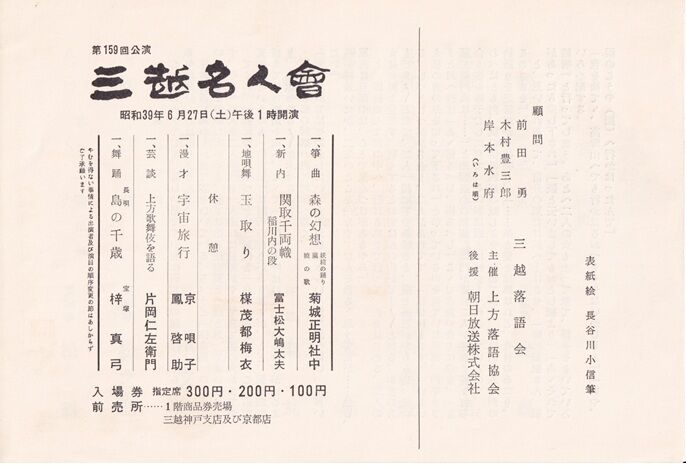 顧問
前田勇
木村豊三郎
岸本水府
(いろは順)
三越落語会
主催 上方落語協会
後援 朝日放送株式会社
表紙絵 長谷川小信筆
第159回公演
三越名人會
昭和39年6月27日(土)午後1時開演
一、箏曲 森の幻想 妖精の踊り 嵐 暁の歌 菊城正明社中
一、新内 関取千両幟 稲川内の段 富士松大嶋太夫
一、地唄舞 玉取り 楳茂都梅衣
休憩
一、漫才 宇宙旅行 京唄子 鳳啓助
一、芸談 上方歌舞伎を語る 片岡仁左衛門
一、舞踊 長唄 島の千歳 宝塚 梓真弓
やむを得ない事情による出演者及び演目の順序変更の節はあしからず
御了承願います
入場券 指定席 300円・200円・100円
前売所……1階商品券売場
三越神戸支店及び京都店